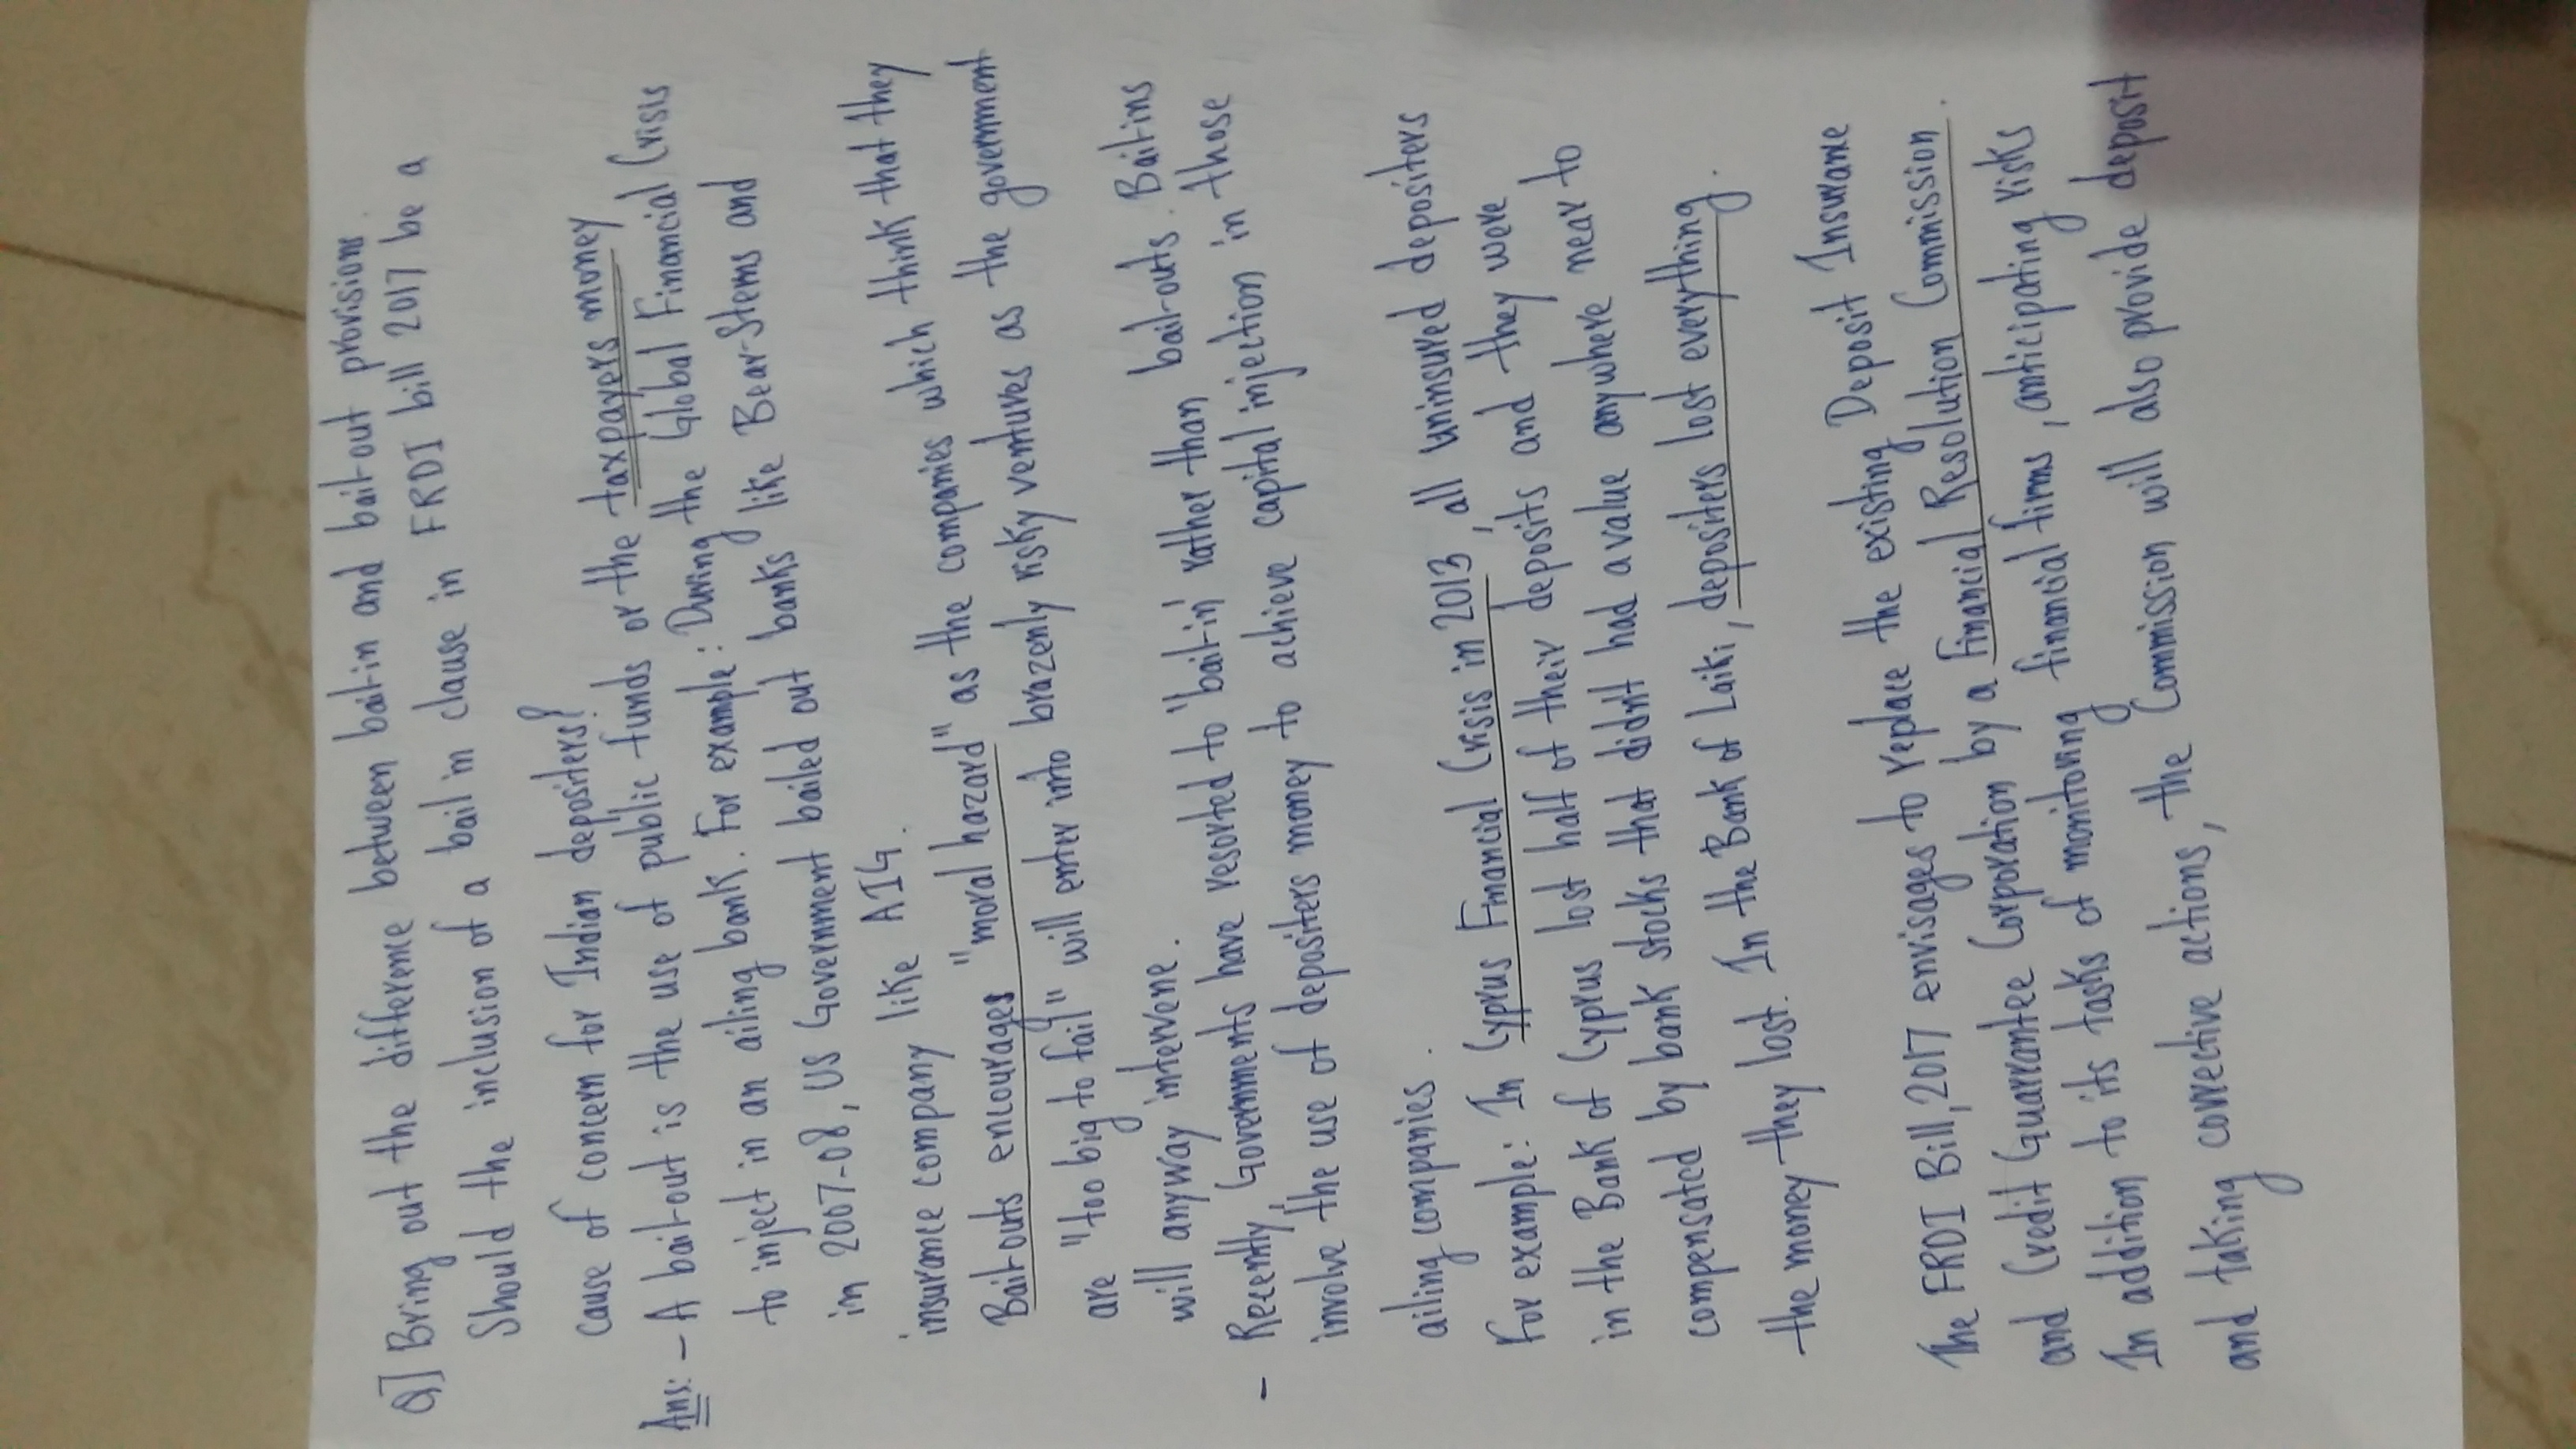 Q] Bring out the difference between bail-in and bail-out provisions.
Should the inclusion of a bail in clause in FRDI bill 2017 be a
cause of concern for Indian depositers?
Ans: - A bail-out is the use of public funds or the taxpayers money
to inject in an ailing bank. For example: During the Global Financial Crisis
in 2007-08, US Government bailed out banks like Bear-Stems and
insurance company like AIG.
Bail-outs encourages "moral hazard" as the companies which think that they
are "too big to fail" will enter into brazenly risky ventures as the government
will anyway intervene.
- Recently, Governments have resorted to 'bail-in' rather than bail-outs. Bail-ins
involve the use of depositers money to achieve capital injection in those
ailing companies.
For example: In Cyprus Financial Crisis in 2013, all uninsured depositers
in the Bank of Cyprus lost half of their deposits and they were
compensated by bank stocks that didn't had a value anywhere near to
the money they lost. In the Bank of Laiki, depositers lost everything.
The FRDI Bill, 2017 envisages to replace the existing Deposit Insurance
and Credit Guarrantee Corporation by a Financial Resolution Commission.
In addition to its tasks of monitoring financial firms, anticipating risks
and taking corrective actions, the Commission will also provide deposit